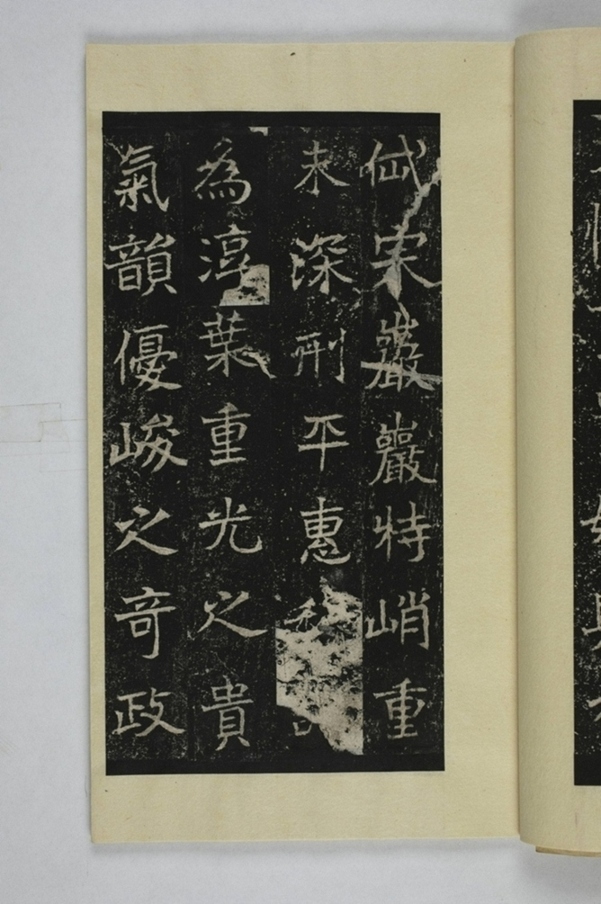 岱宗巖巖特峭重
未深刑平惠和
為淳葉重光之貴
氣韻優峻之奇政